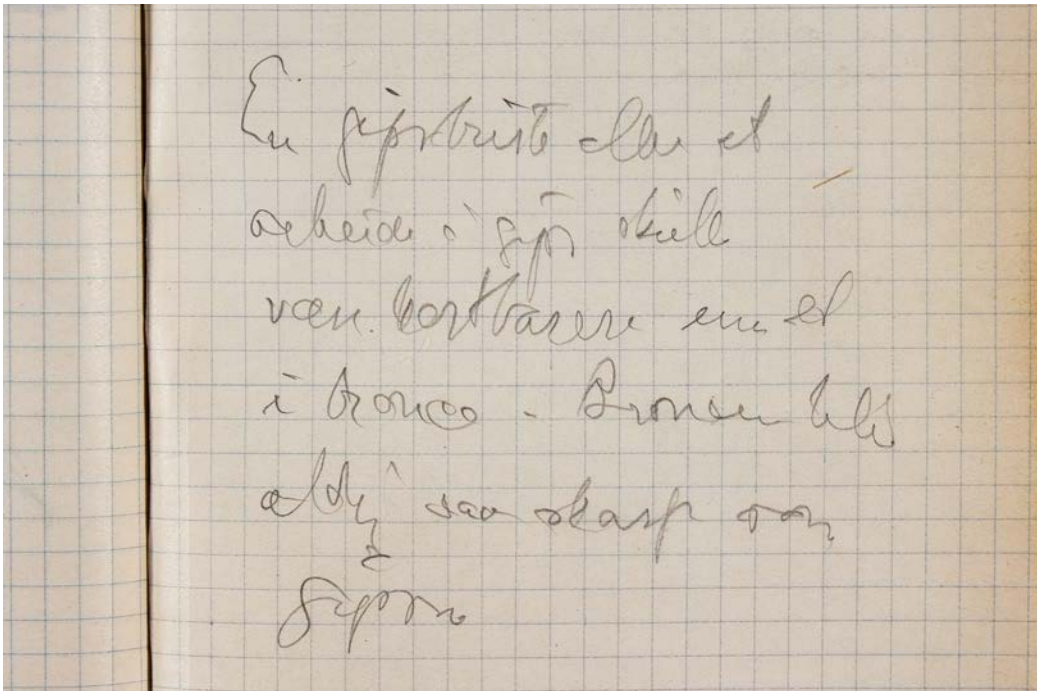 En gipsbüste eller et
arbeide i gips skulle
være kostbarere enn et
i bronce - Broncen blir
aldrig saa skarp som
Gipsen